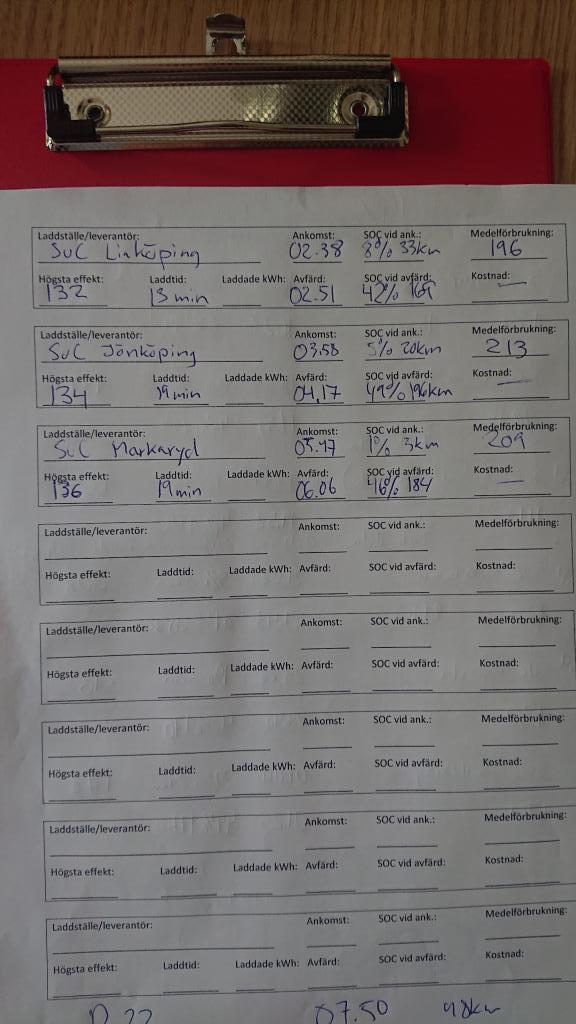 Laddställe/leverantör: Ankomst: SOC vid ank.: Medelförbrukning:
SuC Linköping 02.38 8% 33km 196
Högsta effekt: Laddtid: Laddade kWh: Avfärd: SOC vid avfärd: Kostnad:
132 13 min 02.51 42%
Laddställe/leverantör: Ankomst: SOC vid ank.: Medelförbrukning:
SuC Jönköping 03.58 5% 20km 213
Högsta effekt: Laddtid: Laddade kWh: Avfärd: SOC vid avfärd: Kostnad:
134 19min 04.17 49% 196km
Laddställe/leverantör: Ankomst: SOC vid ank.: Medelförbrukning:
SuC Markaryd 05.47 1% 3km 209
Högsta effekt: Laddtid: Laddade kWh: Avfärd: SOC vid avfärd: Kostnad:
136 19min 06.06 46% 184
Laddställe/leverantör: Ankomst: SOC vid ank.: Medelförbrukning:
Högsta effekt: Laddtid: Laddade kWh: Avfärd: SOC vid avfärd: Kostnad:
Laddställe/leverantör: Ankomst: SOC vid ank.: Medelförbrukning:
Högsta effekt: Laddtid: Laddade kWh: Avfärd: SOC vid avfärd: Kostnad:
Laddställe/leverantör: Ankomst: SOC vid ank.: Medelförbrukning:
Högsta effekt: Laddtid: Laddade kWh: Avfärd: SOC vid avfärd: Kostnad:
Laddställe/leverantör: Ankomst: SOC vid ank.: Medelförbrukning:
Högsta effekt: Laddtid: Laddade kWh: Avfärd: SOC vid avfärd: Kostnad:
Laddställe/leverantör: Ankomst: SOC vid ank.: Medelförbrukning:
Högsta effekt: Laddtid: Laddade kWh: Avfärd: SOC vid avfärd: Kostnad:
07.50